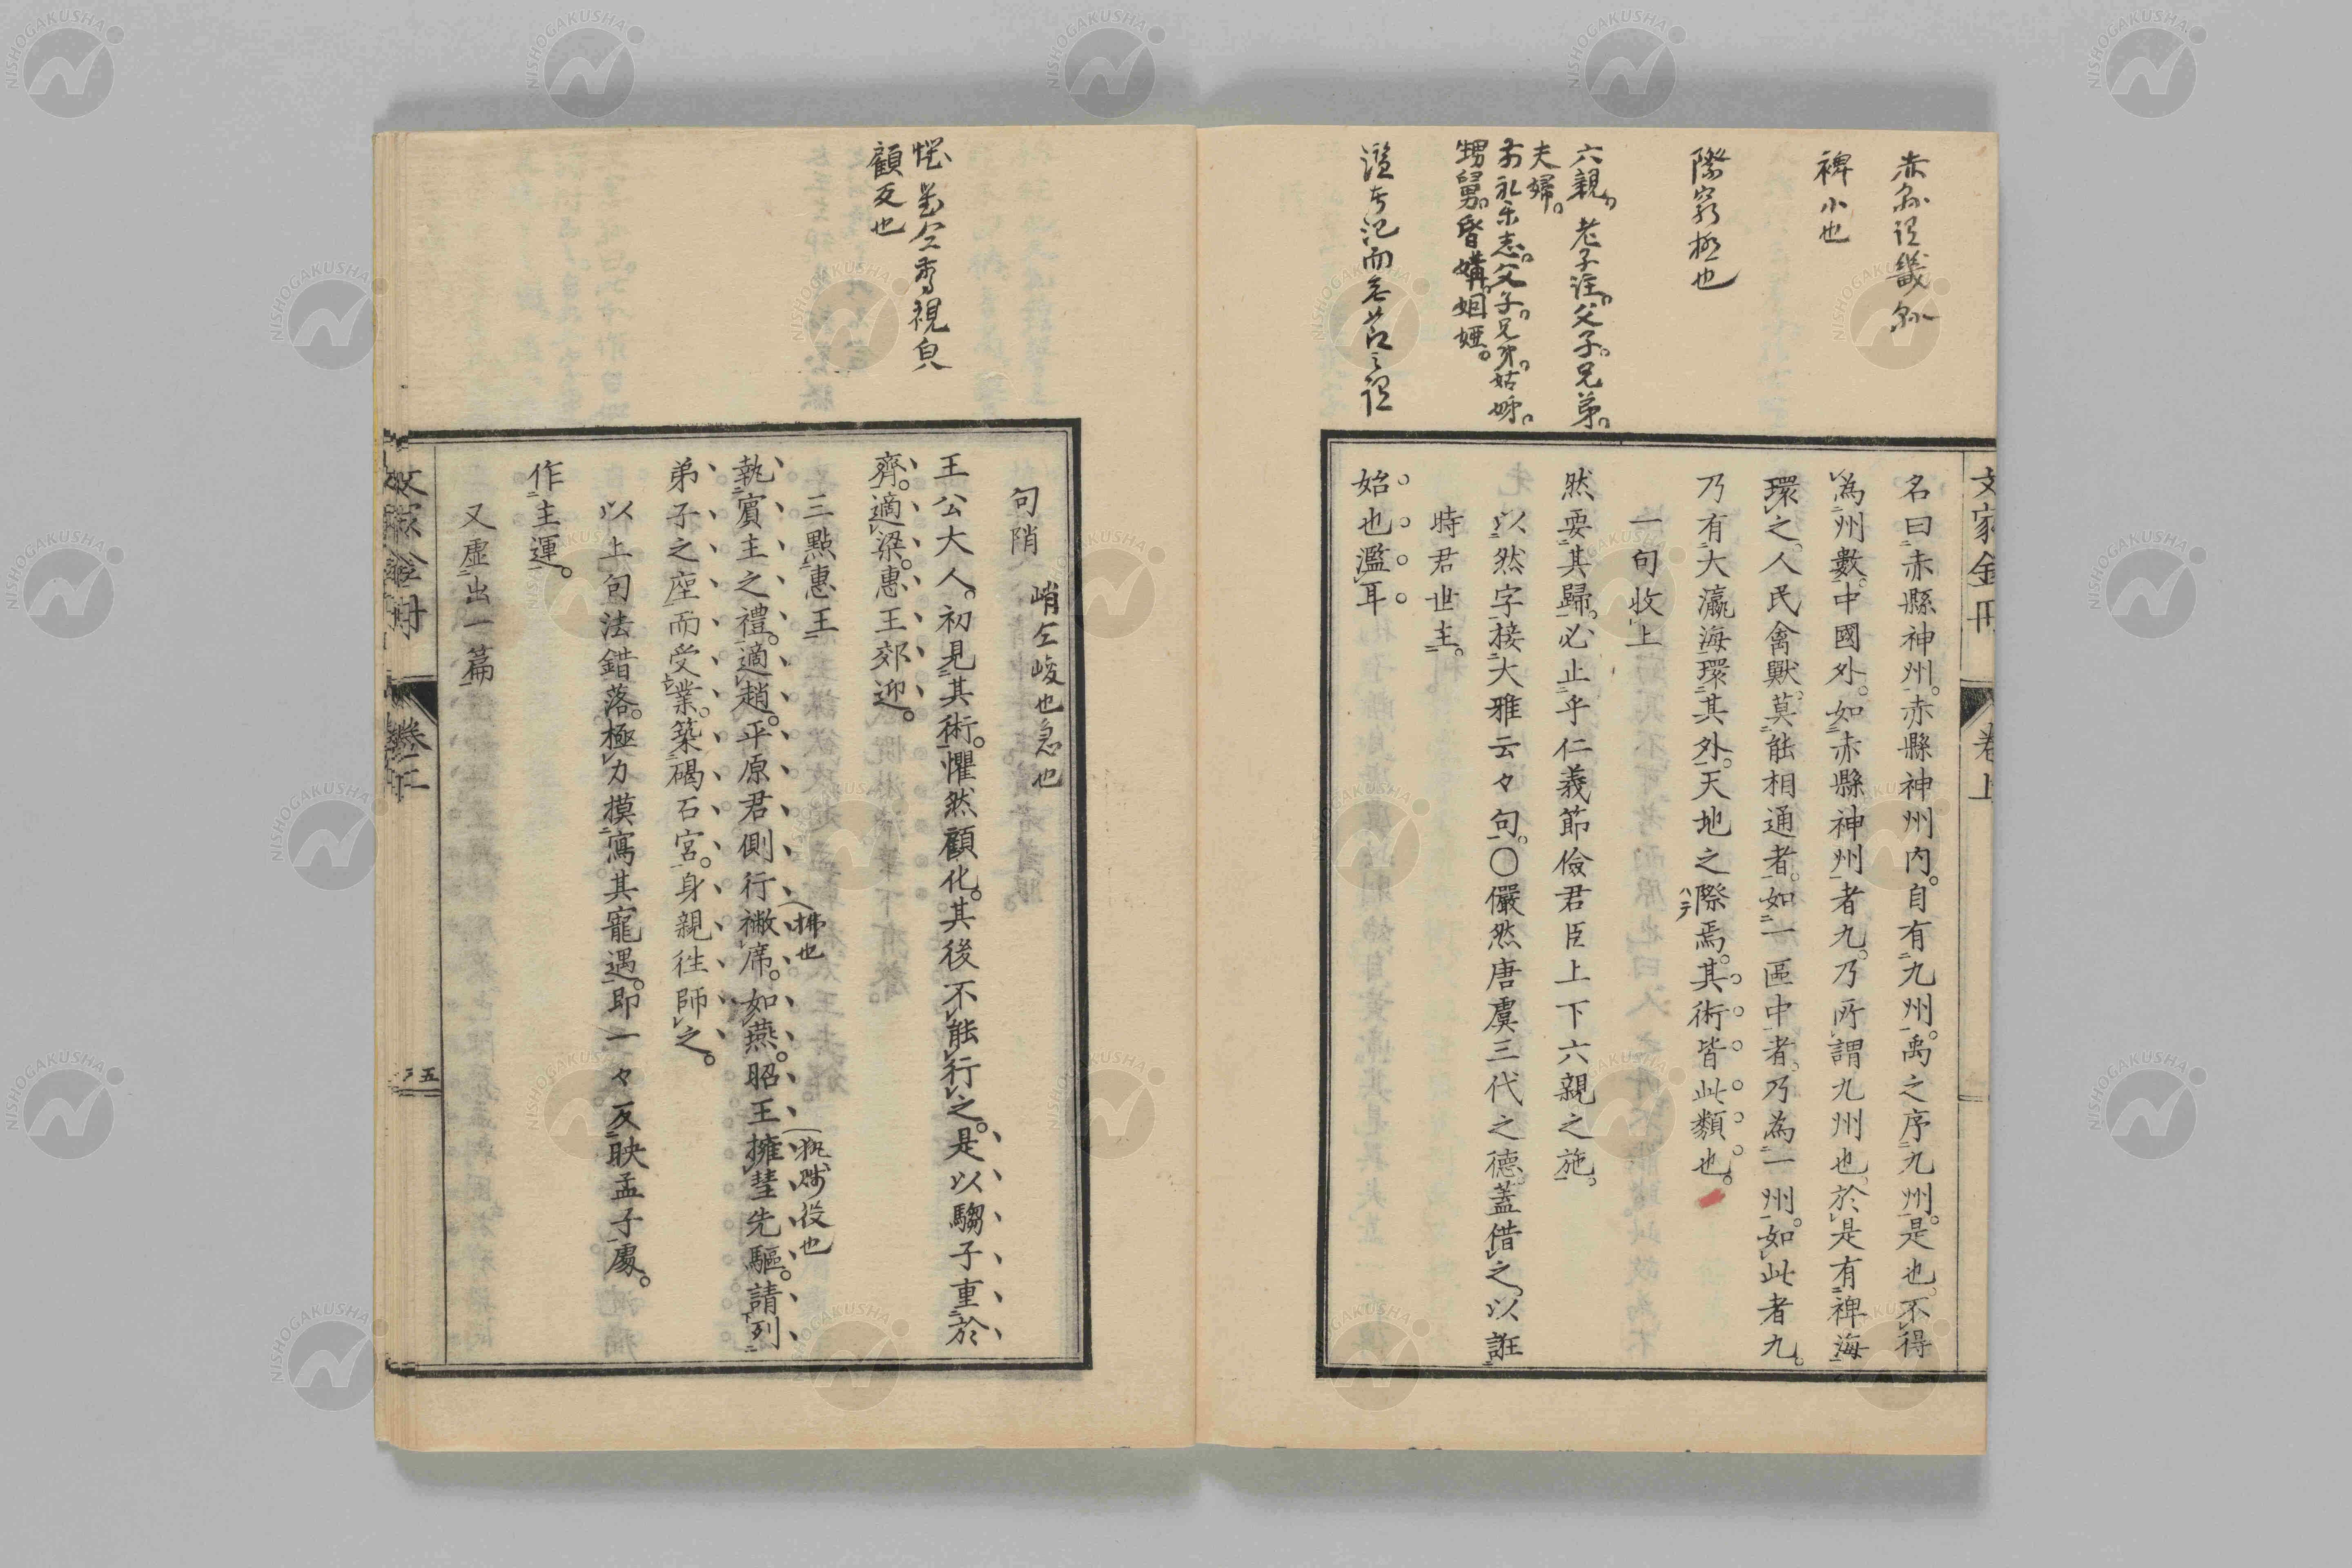 赤縣謂畿縣
裨小也
際窮極也
六親老子注父子兄弟
夫婦
前礼樂志父子兄弟姑姊
甥舅昏媾姻婭
文家金冊
卷上
名曰赤縣神州。赤縣神州內。自有九州。禹之序九州。是也。不得
為州數。中國外。如赤縣神州者九。乃所謂九州也、於是有裨海
環之。人民禽獸。莫能相通者。如一區中者。乃為一州。如此者九。
乃有大瀛海環其外。天地之際焉。其術皆此類也。
ハテ
一句收上
然要其歸。必止乎仁義節儉君臣上下六親之施。
以然字接大雅云々句。〇儼然唐虞三代之德蓋借之。以誑
時君世主。
始也濫耳
顧反也
句陗
峭仝峻也急也
王公大人。初見其術。懼然顧化。其後不能行之。是以騶子重於
齊。適梁。惠王郊迎。
三點惠王
執賓主之禮。適趙。平原君側行襒席。如燕。昭王擁彗先驅。請列
拂也
執賤役也
弟子之座而受業。築碣石宮。身親往師之。
以上句法錯落。極力摸寫其寵遇。即一々反映孟子處。
作主運。
又虛出一篇
五